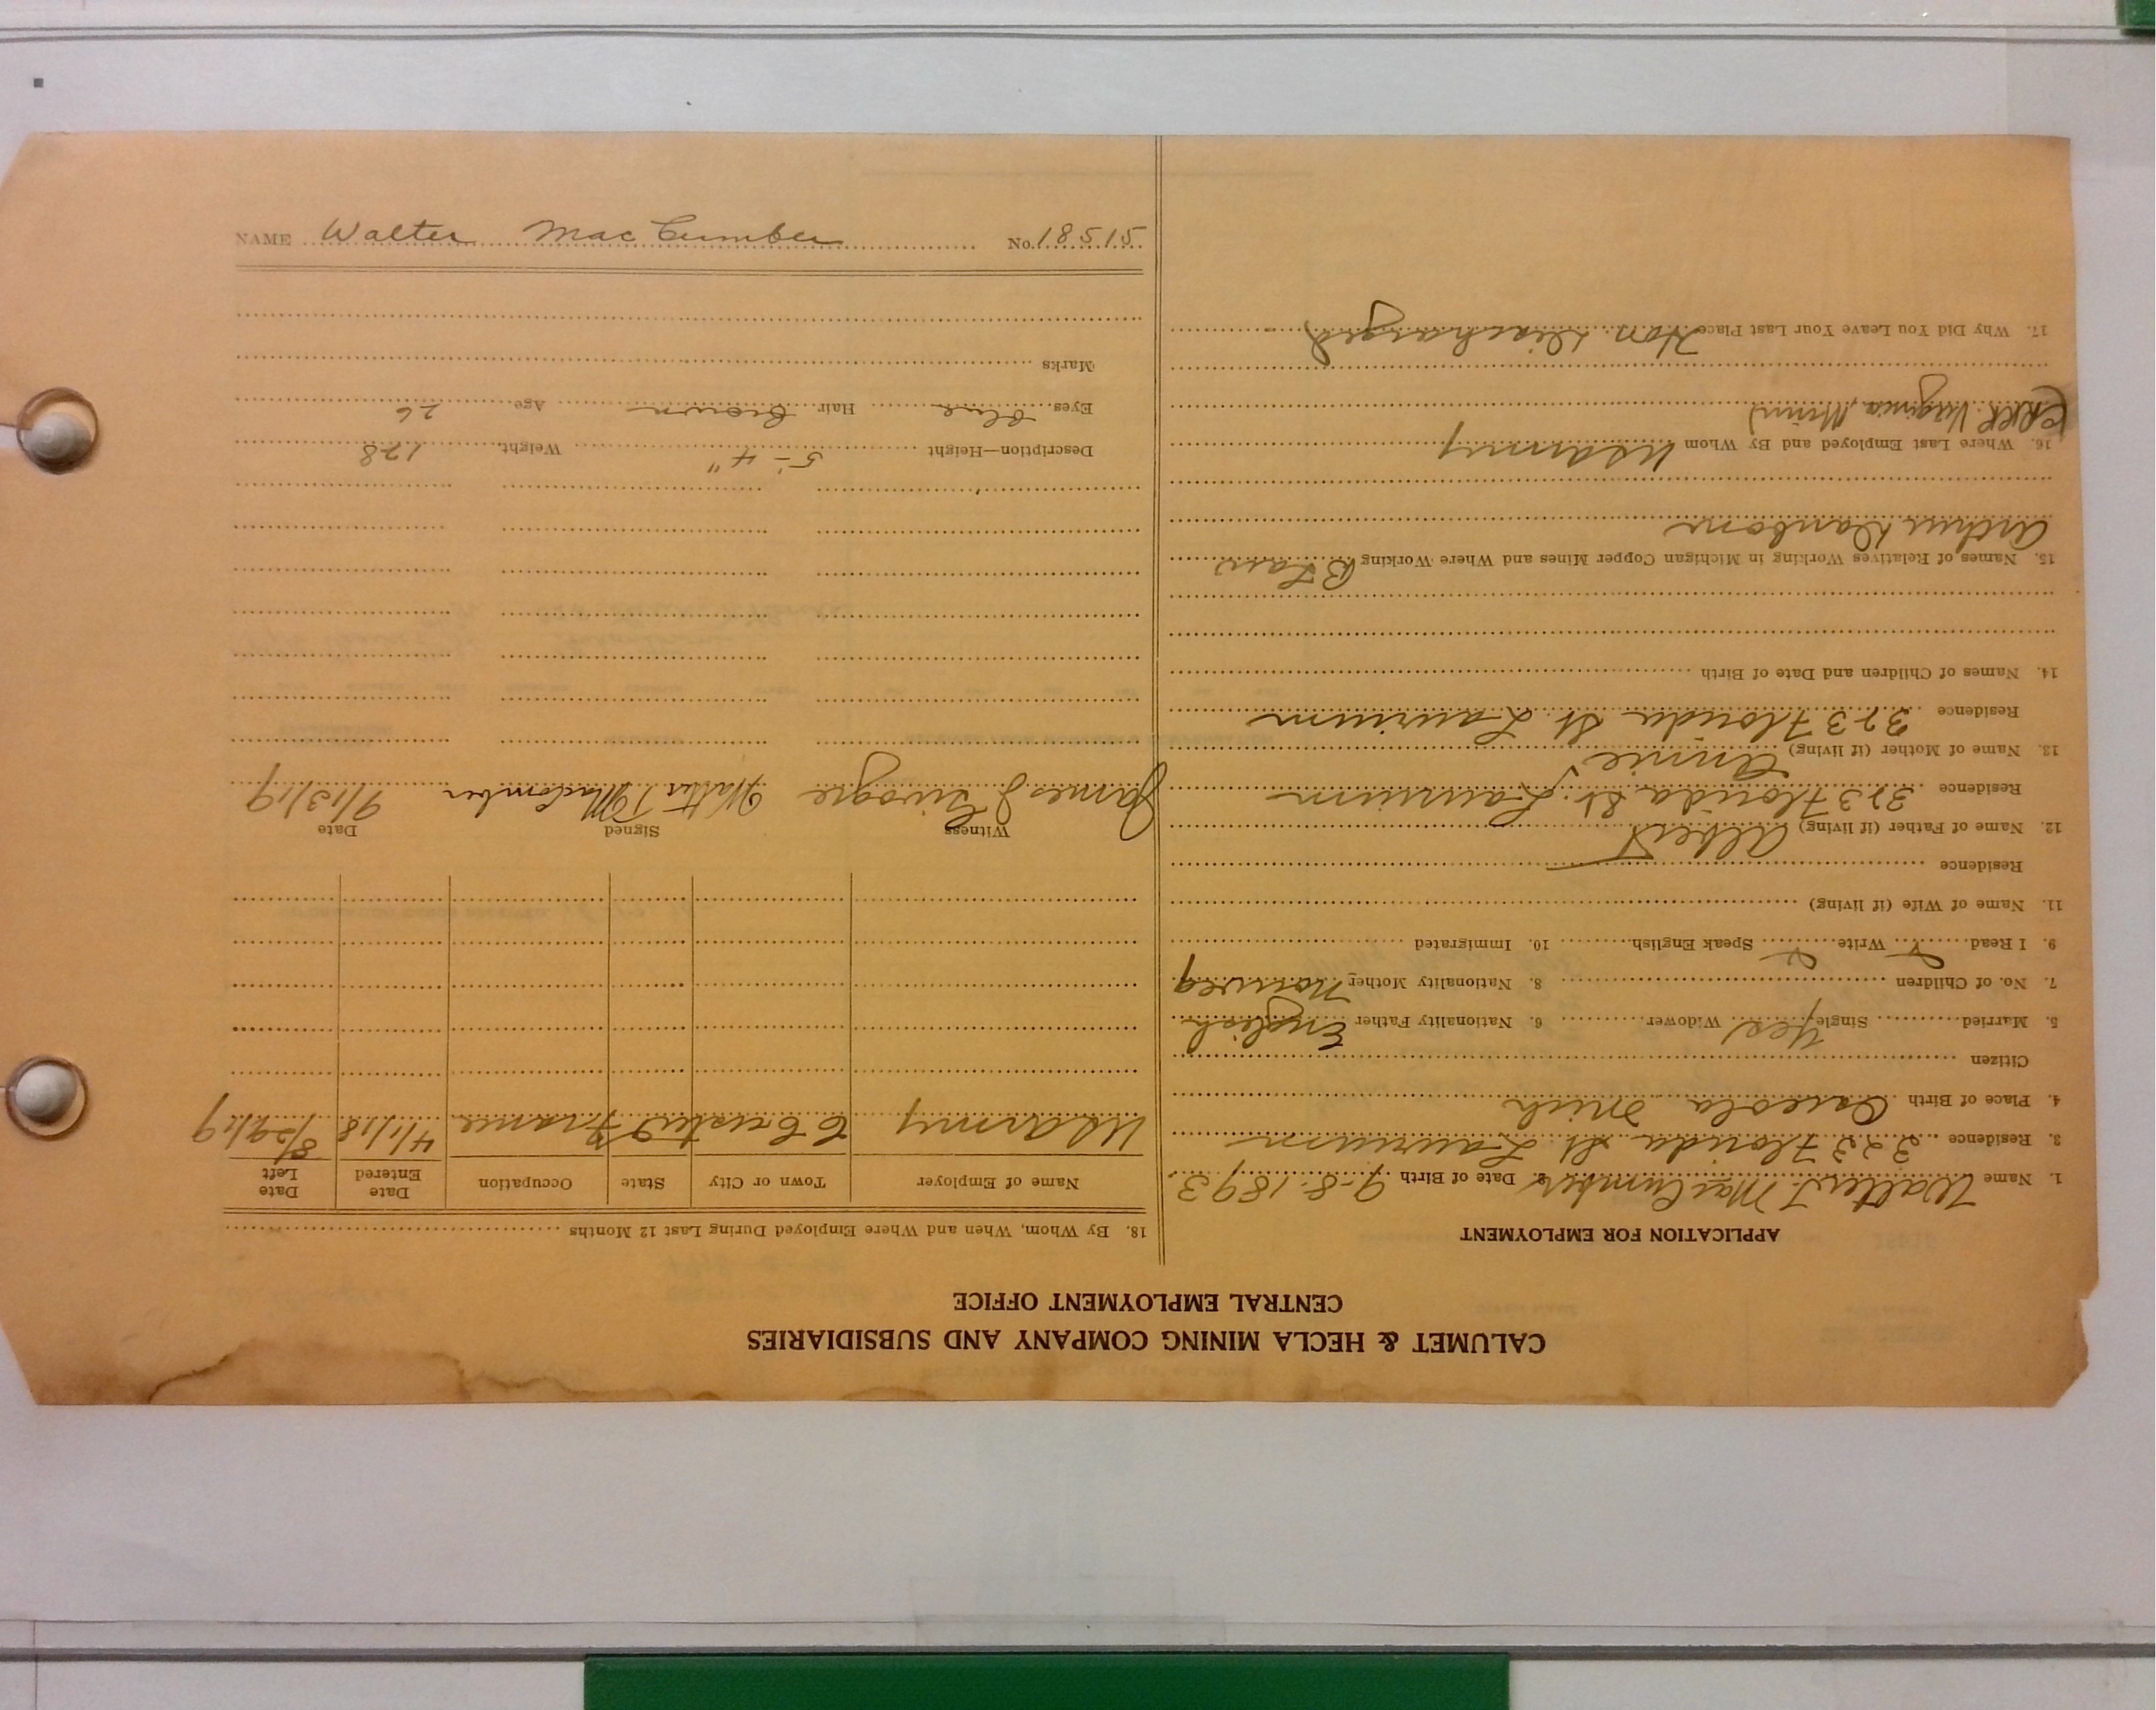 CALUMET & HECLA MINING COMPANY AND SUBSIDIARIES
CENTRAL EMPLOYMENT OFFICE
APPLICATION FOR EMPLOYMENT
1. Name Walter J. MacCumber 2. Date of Birth 9-8-1893.
3. Residence 323 Florida St. Laurium
4. Place of Birth Osceola Mich
Citizen
5. Married Single Yes Widower 6. Nationality Father English
7. No. of Children 8. Nationality Mother Norweg
9. I Read Write Speak English 10. Immigrated
11. Name of Wife (if living)
Residence
12. Name of Father (if living) Albert
Residence 323 Florida St. Laurium
13. Name of Mother (if living) Annie
Residence 323 Florida St. Laurium
14. Names of Children and Date of Birth
15. Names of Relatives Working in Michigan Copper Mines and Where Working B Law
Arthur
16. Where Last Employed and By Whom US Army
Virginia Minn)
17. Why Did You Leave Your Last Place Hon Discharged
18. By Whom, When and Where Employed During Last 12 Months
Name of Employer Town or City State Occupation Date Entered Date Left
US Army France 4/1/18 8/29/19
Witness Signed Date
James J Walter J MacComber 9/13/19
Description—Height 5'-4" Weight 128
Eyes Blue Hair Brown Age 26
Marks
NAME Walter MacCumber No. 18515